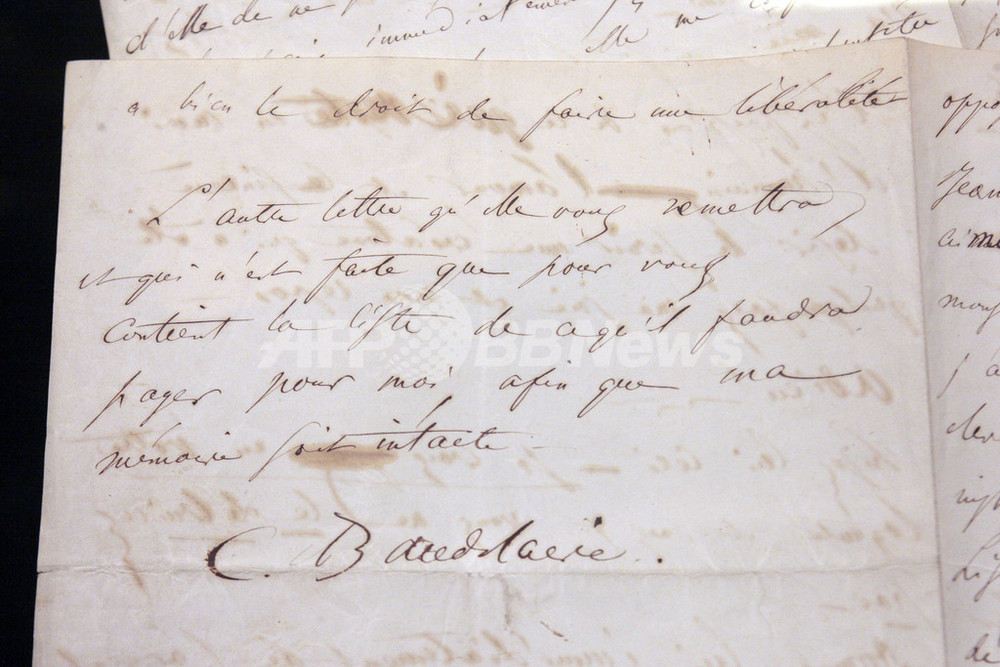 d'elle de ne
immédiatement
elle me
a bien le droit de faire une libéralité
L'autre lettre qu'elle vous remettra,
et qui n'est faite que pour vous
contient la liste de ce qu'il faudra
payer pour moi afin que ma
mémoire soit intacte –
C. Baudelaire.
AFP BBNews
oppo
Jean
aime
mour
j'a
de